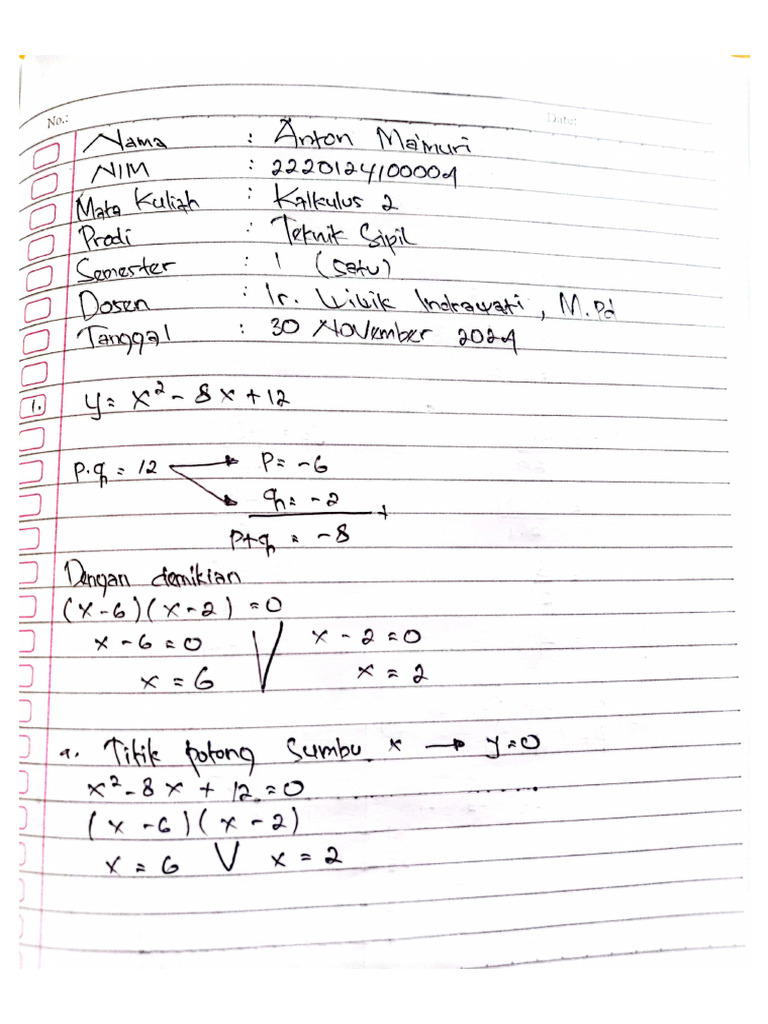 No.:
Date:
Nama : Anton Ma'muri
NIM : 2220124100004
Mata Kuliah : Kalkulus 2
Prodi : Teknik Sipil
Semester : 1 (satu)
Dosen : Ir. Lilik Indrawati, M.Pd
Tanggal : 30 November 2024
1. y = x² - 8x + 12
p.q = 12 → p = -6
q = -2
p+q = -8
Dengan demikian
(x-6)(x-2) = 0
x - 6 = 0 V x - 2 = 0
x = 6 x = 2
a. Titik potong sumbu x → y = 0
x² - 8x + 12 = 0
(x - 6)(x - 2)
x = 6 V x = 2